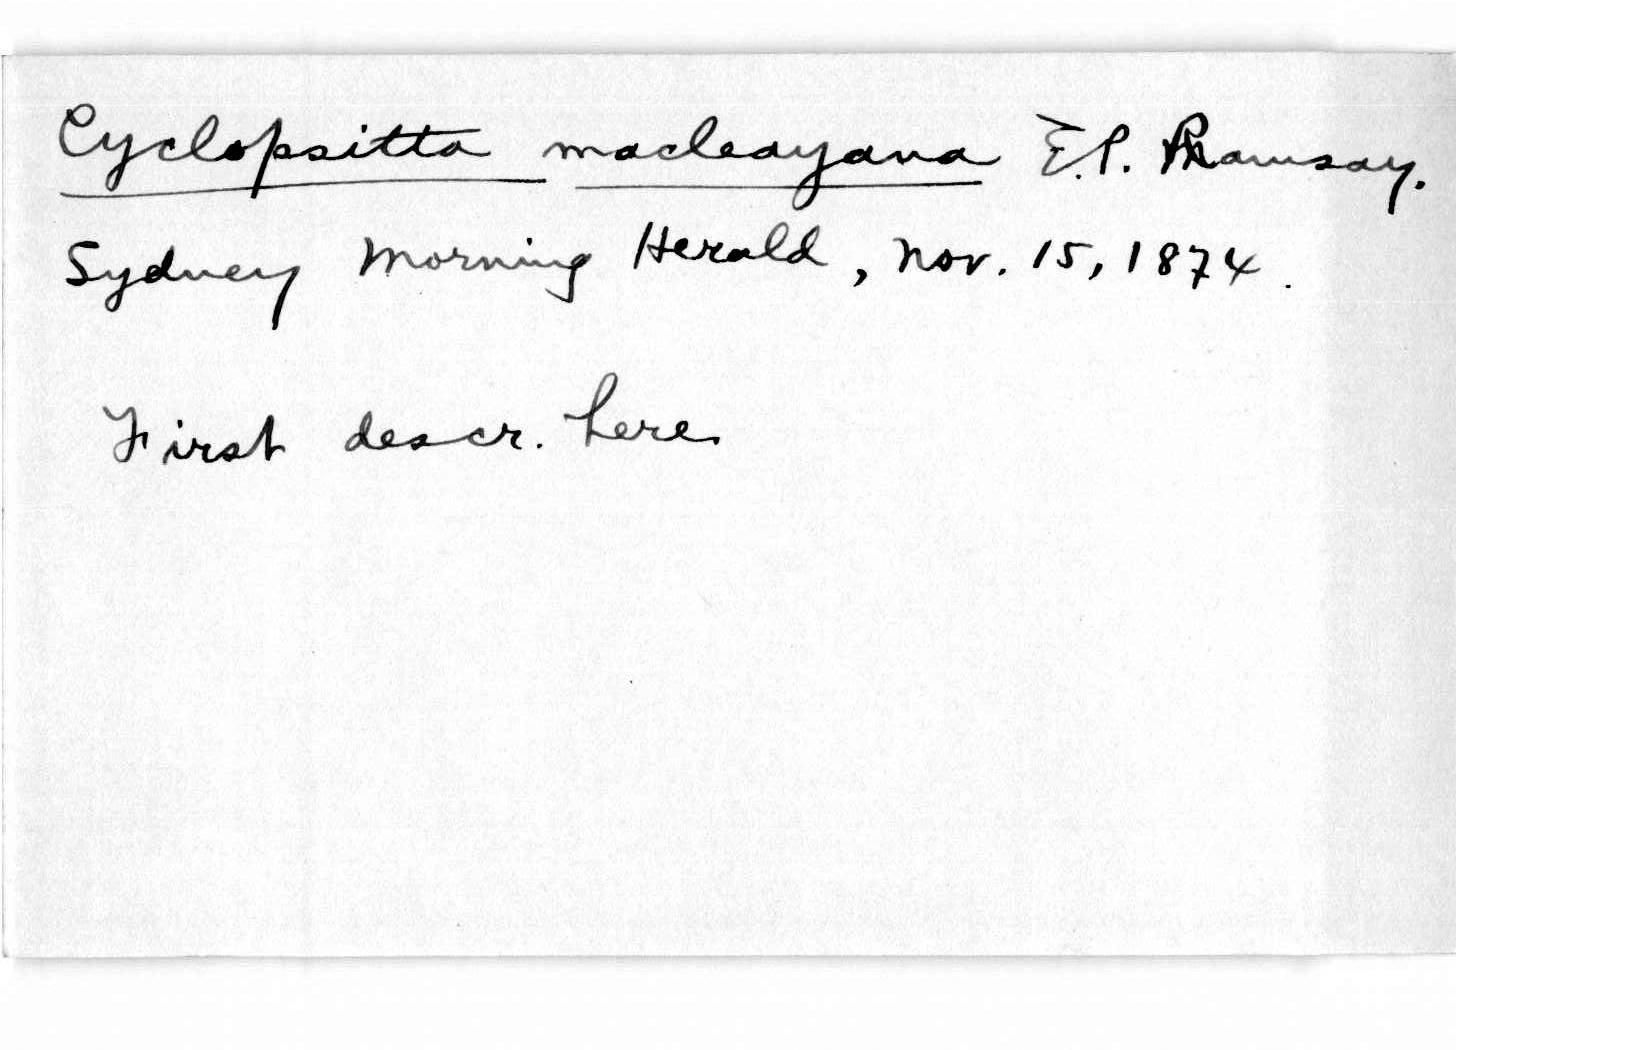 Cyclopsitta macleayana E.P. Ramsay.
Sydney Morning Herald, Nov. 15, 1874.
First descr. here